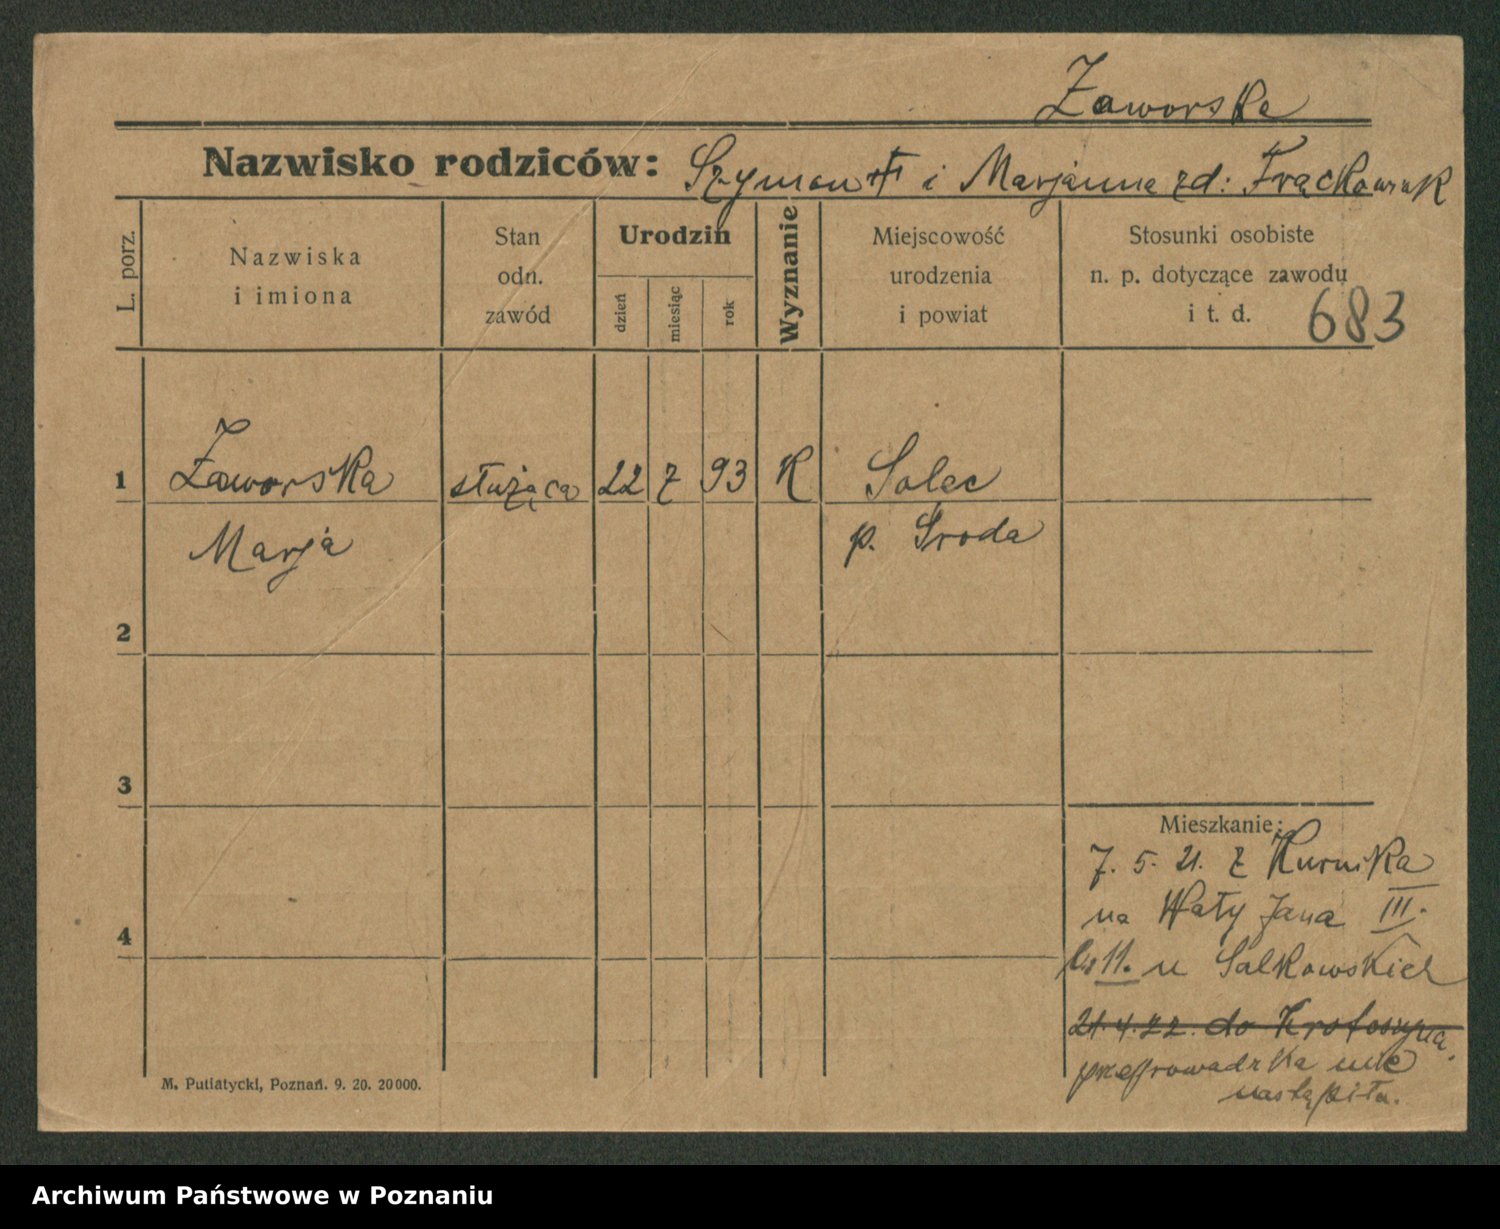 Zaworska
Nazwisko rodziców: Szymon i Marjanna zd: Frąckowiak
L. porz.
Nazwiska
i imiona
Stan
odn.
zawód
Urodzin
dzień
miesiąc
rok
Wyznanie
Miejscowość
urodzenia
i powiat
Stosunki osobiste
n. p. dotyczące zawodu
i t. d.
683
1 Zaworska służąca 22 7 93 K Solec
Marja p. Środa
2
3
4
Mieszkanie:
7. 5. 21. z Kurnika
na Wały Jana III.
11. u Salkowskich
21. 4. 22. do Krotoszyna.
przeprowadzka nie
nastąpiła.
M. Putiatycki, Poznań. 9. 20. 20000.
Archiwum Państwowe w Poznaniu